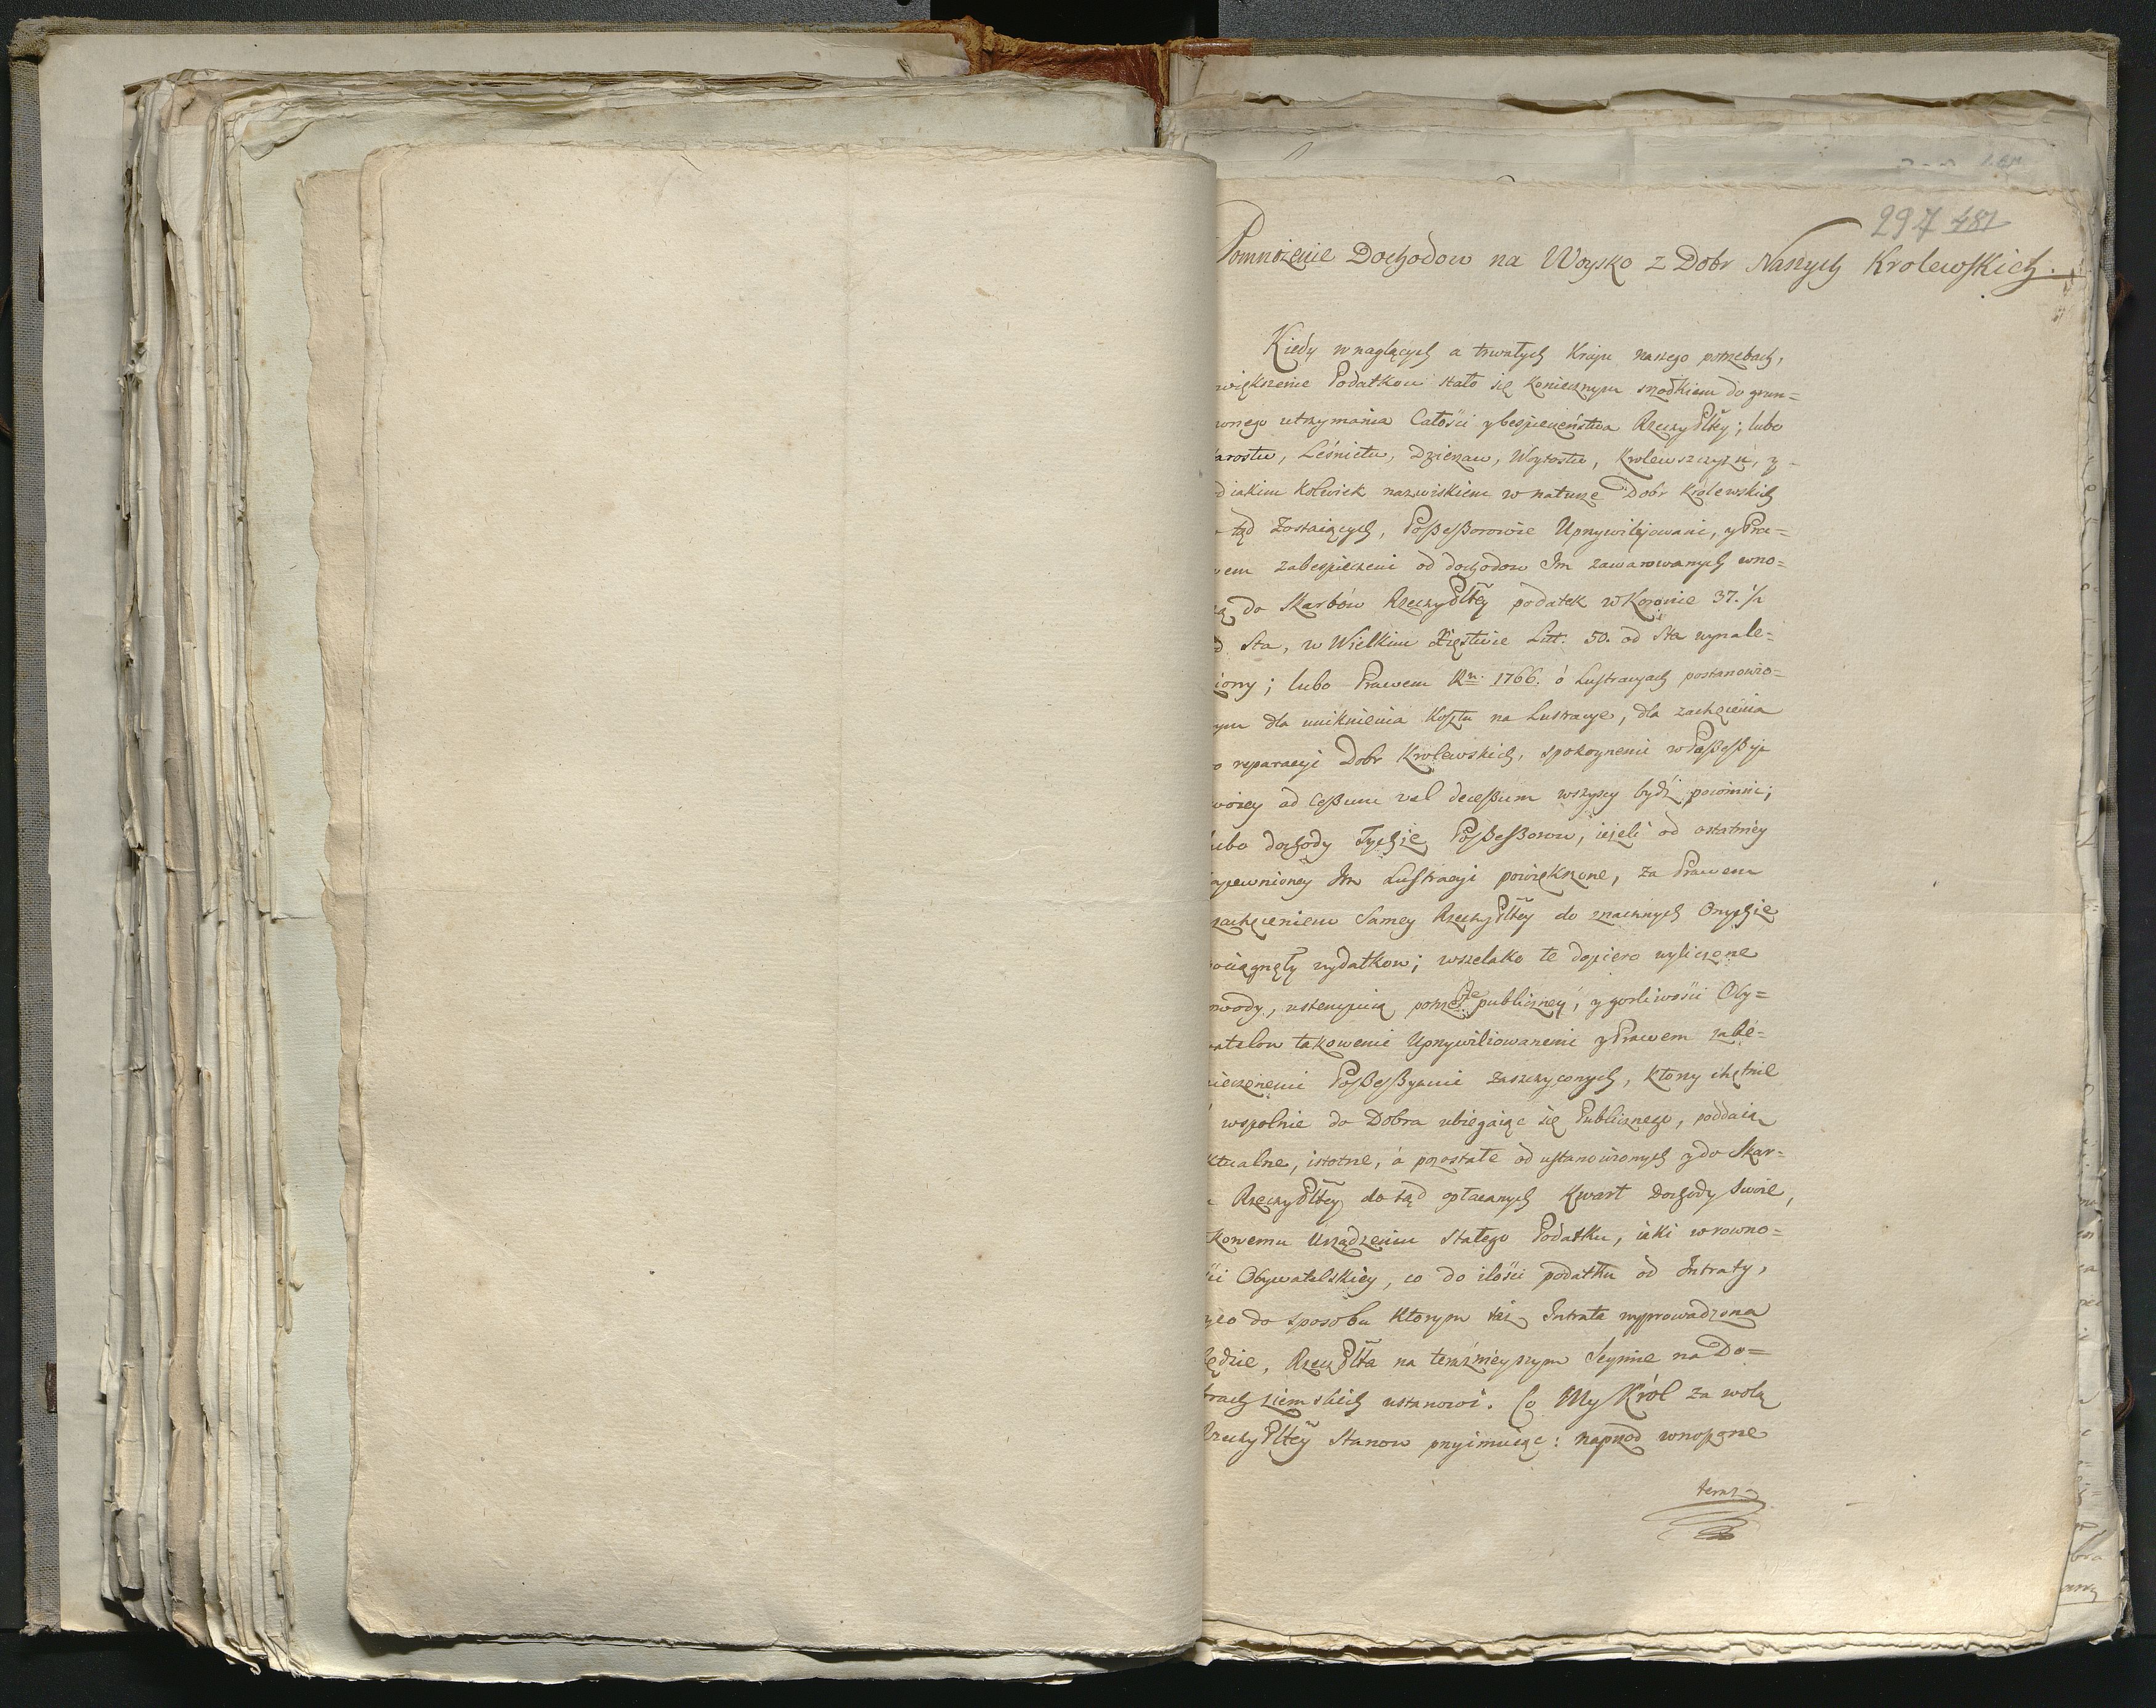 297 481
Pomnożenie Dochodow na Woysko z Dobr Naszych Krolewskich.
Kiedy w naglących a trwałych Kraju naszego potrzebach,
większenie Podatkow stało się koniecznym srzodkiem do grun=
wnego utrzymania Całości y bespieczeństwa RzeczyPltey; lubo
arostw, Leśnictw, Dzierżaw, Woytostw, Krolewszczyzn, y
diakim kolwiek nazwiskiem w naturze Dobr Krolewskich
tąd Zostaiących, Possessorowie Uprzywilejowani, y Pra=
wem zabespieczeni od dochodow Im zawarowanych wno=
szą do Skarbow RzeczyPltey podatek w Koronie 37. ½
d Sta, w Wielkim Xięstwie Litt: 50. od Sta wynale=
ziony; lubo Prawem Rku 1766. o Lustracyach postanowio=
nym dla uniknienia Kosztu na Lustracye, dla zachęcenia
o reparacyi Dobr Krolewskich, spokoynemi w Possessyi
swoiey ad cessum vel decessum wszyscy bydź powinni;
lubo dochody Tychże Possessorow, ieżeli od ostatniey
zapewnioney Im Lustracyi powiększone, za Prawem
zachęceniem Samey RzeczyPltey do znacznych Onychże
pociągnęły wydatkow; wszelako te dopiero wyliczone
owody, ustempuią potrzebie publiczney, y gorliwości Oby=
watelow takowemi Uprzywiliowanemi y Prawem zabe=
pieczonemi Possessyami zaszczyconych, ktorzy chętnie
wspolnie do Dobra ubiegaiąc się Publicznego, poddaią
ktualne, istotne, a pozostałe od ustanowionych y do Skar=
RzeczyPltey do tąd opłacanych Kwart Dochody swoie,
kowemu Urządzeniu stałego Podatku, iaki w rowno=
ści Obywatelskiey, co do ilości podatku od Intraty,
y co do sposobu ktorym taż Intrata wyprowadzona
będzie, RzeczPlta na teraźnieyszym Seymie na Do=
brach ziemskich ustanowi. Co My Król za wolą
RzeczyPltey Stanow przyimuiąc: naprzod wnoszone
teraz